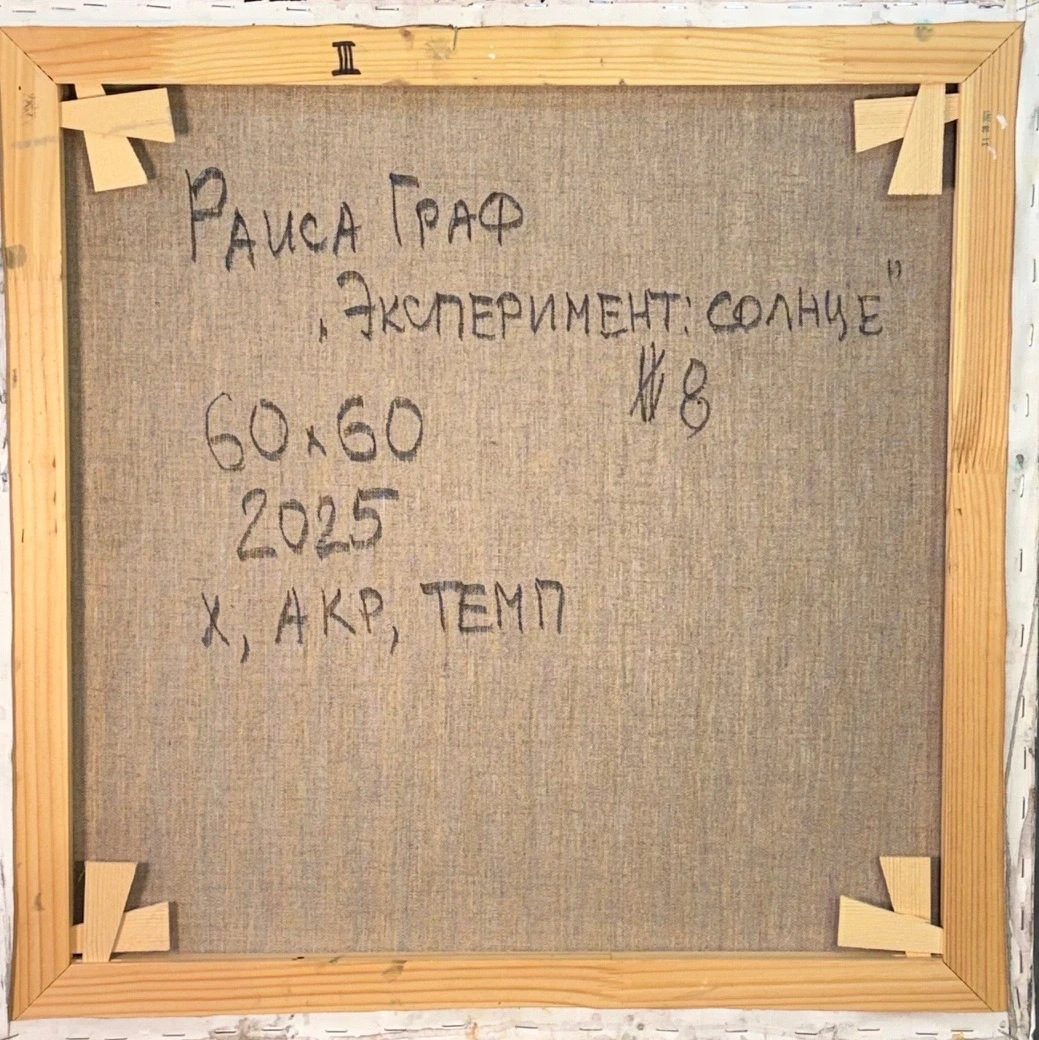 III
Раиса Граф
„Эксперимент: солнце"
# 8
60 x 60
2025
Х, АКР, ТЕМП